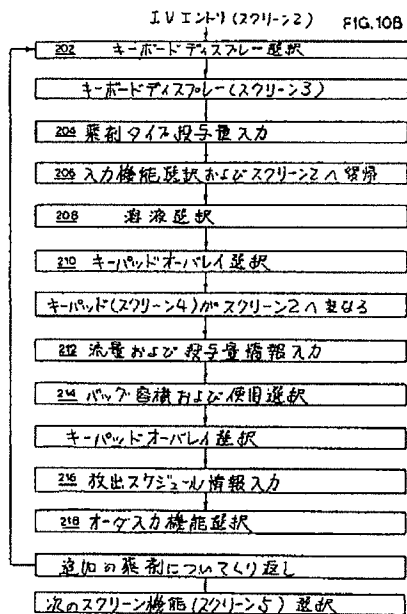 IVエントリ(スクリーン2)
FIG.10B
202 キーボードディスプレー選択
キーボードディスプレー(スクリーン3)
204 薬剤タイプ投与量入力
206 入力機能選択およびスクリーン2へ復帰
208 溶液選択
210 キーパッドオーバレイ選択
キーパッド(スクリーン4)がスクリーン2へ重なる
212 流量および投与量情報入力
214 バッグ容積および使用選択
キーパッドオーバレイ選択
216 放出スケジュール情報入力
218 オーダ入力機能選択
追加の薬剤についてくり返し
次のスクリーン機能(スクリーン5)選択